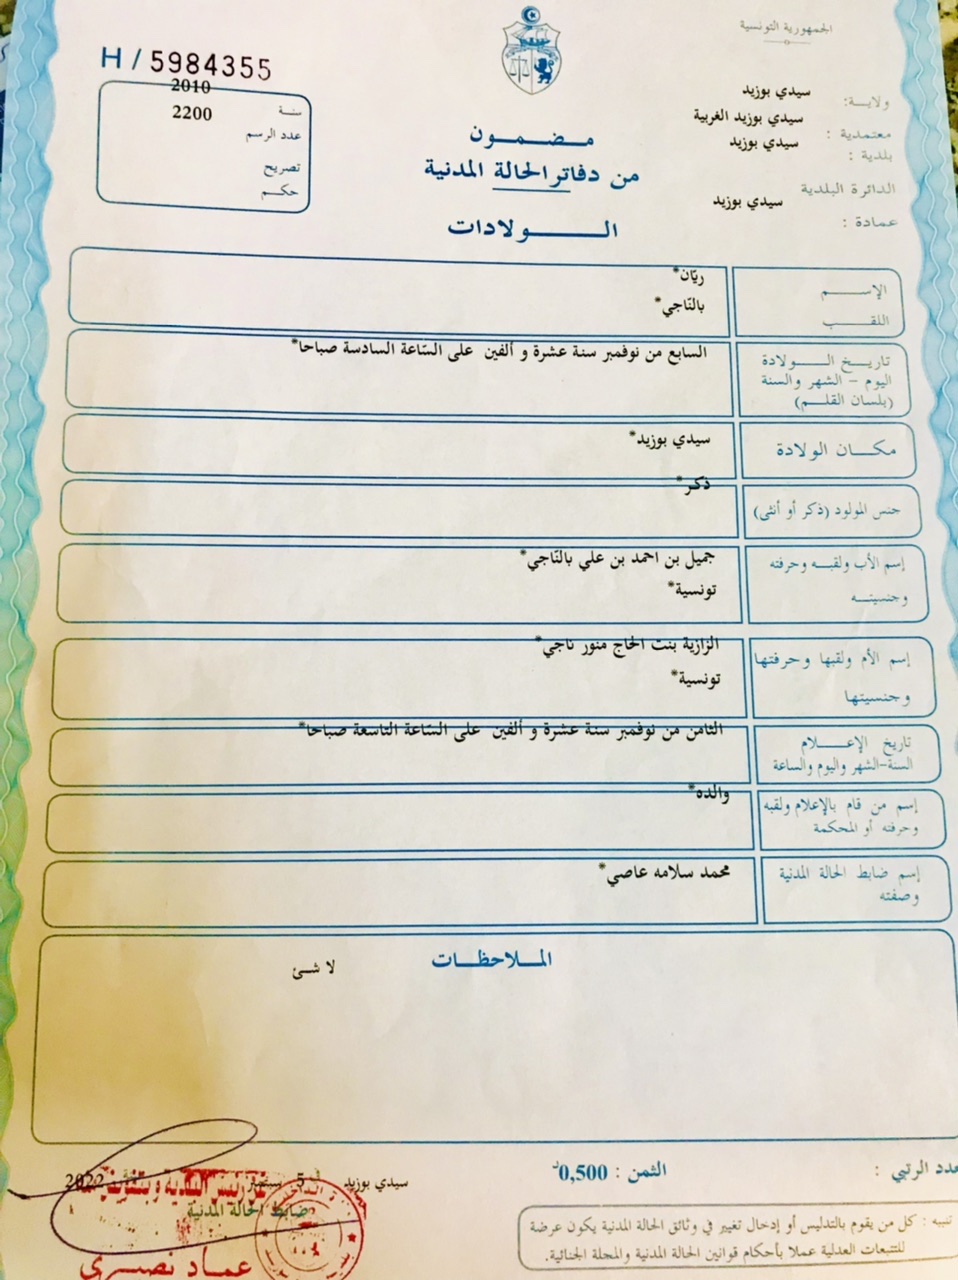 الجمهورية التونسية
H / 5984355
سنة 2010
عدد الرسم 2200
تصريح
حكم
ولاية: سيدي بوزيد
معتمدية : سيدي بوزيد الغربية
بلدية : سيدي بوزيد
الدائرة البلدية
عمادة : سيدي بوزيد
مضمون
من دفاتر الحالة المدنية
الولادات
الإسم ريّان*
اللقب بالنّاجي*
تاريخ الولادة
اليوم - الشهر والسنة
(بلسان القلم)
السابع من نوفمبر سنة عشرة و ألفين على السّاعة السادسة صباحا*
مكان الولادة سيدي بوزيد*
جنس المولود (ذكر أو أنثى) ذكر*
إسم الأب ولقبه وحرفته
وجنسيته
جميل بن احمد بن علي بالنّاجي*
تونسية*
إسم الأم ولقبها وحرفتها
وجنسيتها
الزازية بنت الحاج منور ناجي*
تونسية*
تاريخ الإعلام
السنة-الشهر واليوم والساعة
الثامن من نوفمبر سنة عشرة و ألفين على السّاعة التاسعة صباحا*
إسم من قام بالإعلام ولقبه
وحرفته أو المحكمة
والده*
إسم ضابط الحالة المدنية
وصفته
محمد سلامه عاصي*
الملاحظات
لا شئ
عدد الرتبي :
الثمن : 0,500د
سيدي بوزيد في 5 سبتمبر 2022
عن رئيس البلدية وبتفويض منه
ضابط الحالة المدنية
عماد نصري
تنبيه : كل من يقوم بالتدليس أو إدخال تغيير في وثائق الحالة المدنية يكون عرضة
للتتبعات العدلية عملا بأحكام قوانين الحالة المدنية والمجلة الجنائية.